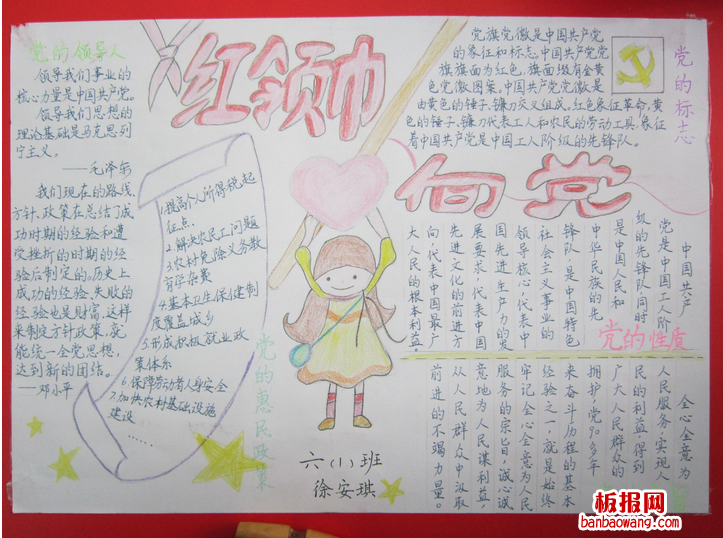 党的领导人
领导我们事业的
核心力量是中国共产党。
领导我们思想的
理论基础是马克思列
宁主义。
——毛泽东
我们现在的路线
方针、政策在总结了成
功时期的经验和遭
受挫折的时期的经
验后制定的。历史上
成功的经验、失败的
经验也是财富,这样
来制定方针政策,就
能统一全党思想,
达到新的团结。
——邓小平
红领巾
向党
1.提高个人所得税起
征点.
2.解决农民工问题
3.农村免除义务教
育学杂费
4.基本卫生保健制
度覆盖城乡
5.形成积极就业政
策体系
6.保障劳动者人身安全
7.加快农村基础设施
建设……
党的惠民政策
六(1)班
徐安琪
党旗党徽是中国共产党
的象征和标志。中国共产党党
旗旗面为红色,旗面缀有金黄
色党徽图案。中国共产党党徽是
由黄色的锤子、镰刀交叉组成。红色象征革命,黄
色的锤子、镰刀代表工人和农民的劳动工具,象征
着中国共产党是中国工人阶级的先锋队。
党的标志
中国共产
党是中国工人阶
级的先锋队,同时
是中国人民和
中华民族的先
锋队,是中国特色
社会主义事业的
领导核心,代表中
国先进生产力的发
展要求,代表中国
先进文化的前进方
向,代表中国最广
大人民的根本利益。
党的性质
全心全意为
人民服务,实现人
民的利益,得到
广大人民群众的
拥护,党90多年
来奋斗历程的基本
经验之一,就是始终
牢记全心全意为人民
服务的崇旨,诚心诚
意地为人民谋利益,
从人民群众中汲取
前进的不竭力量。
板报网
banbaowang.com